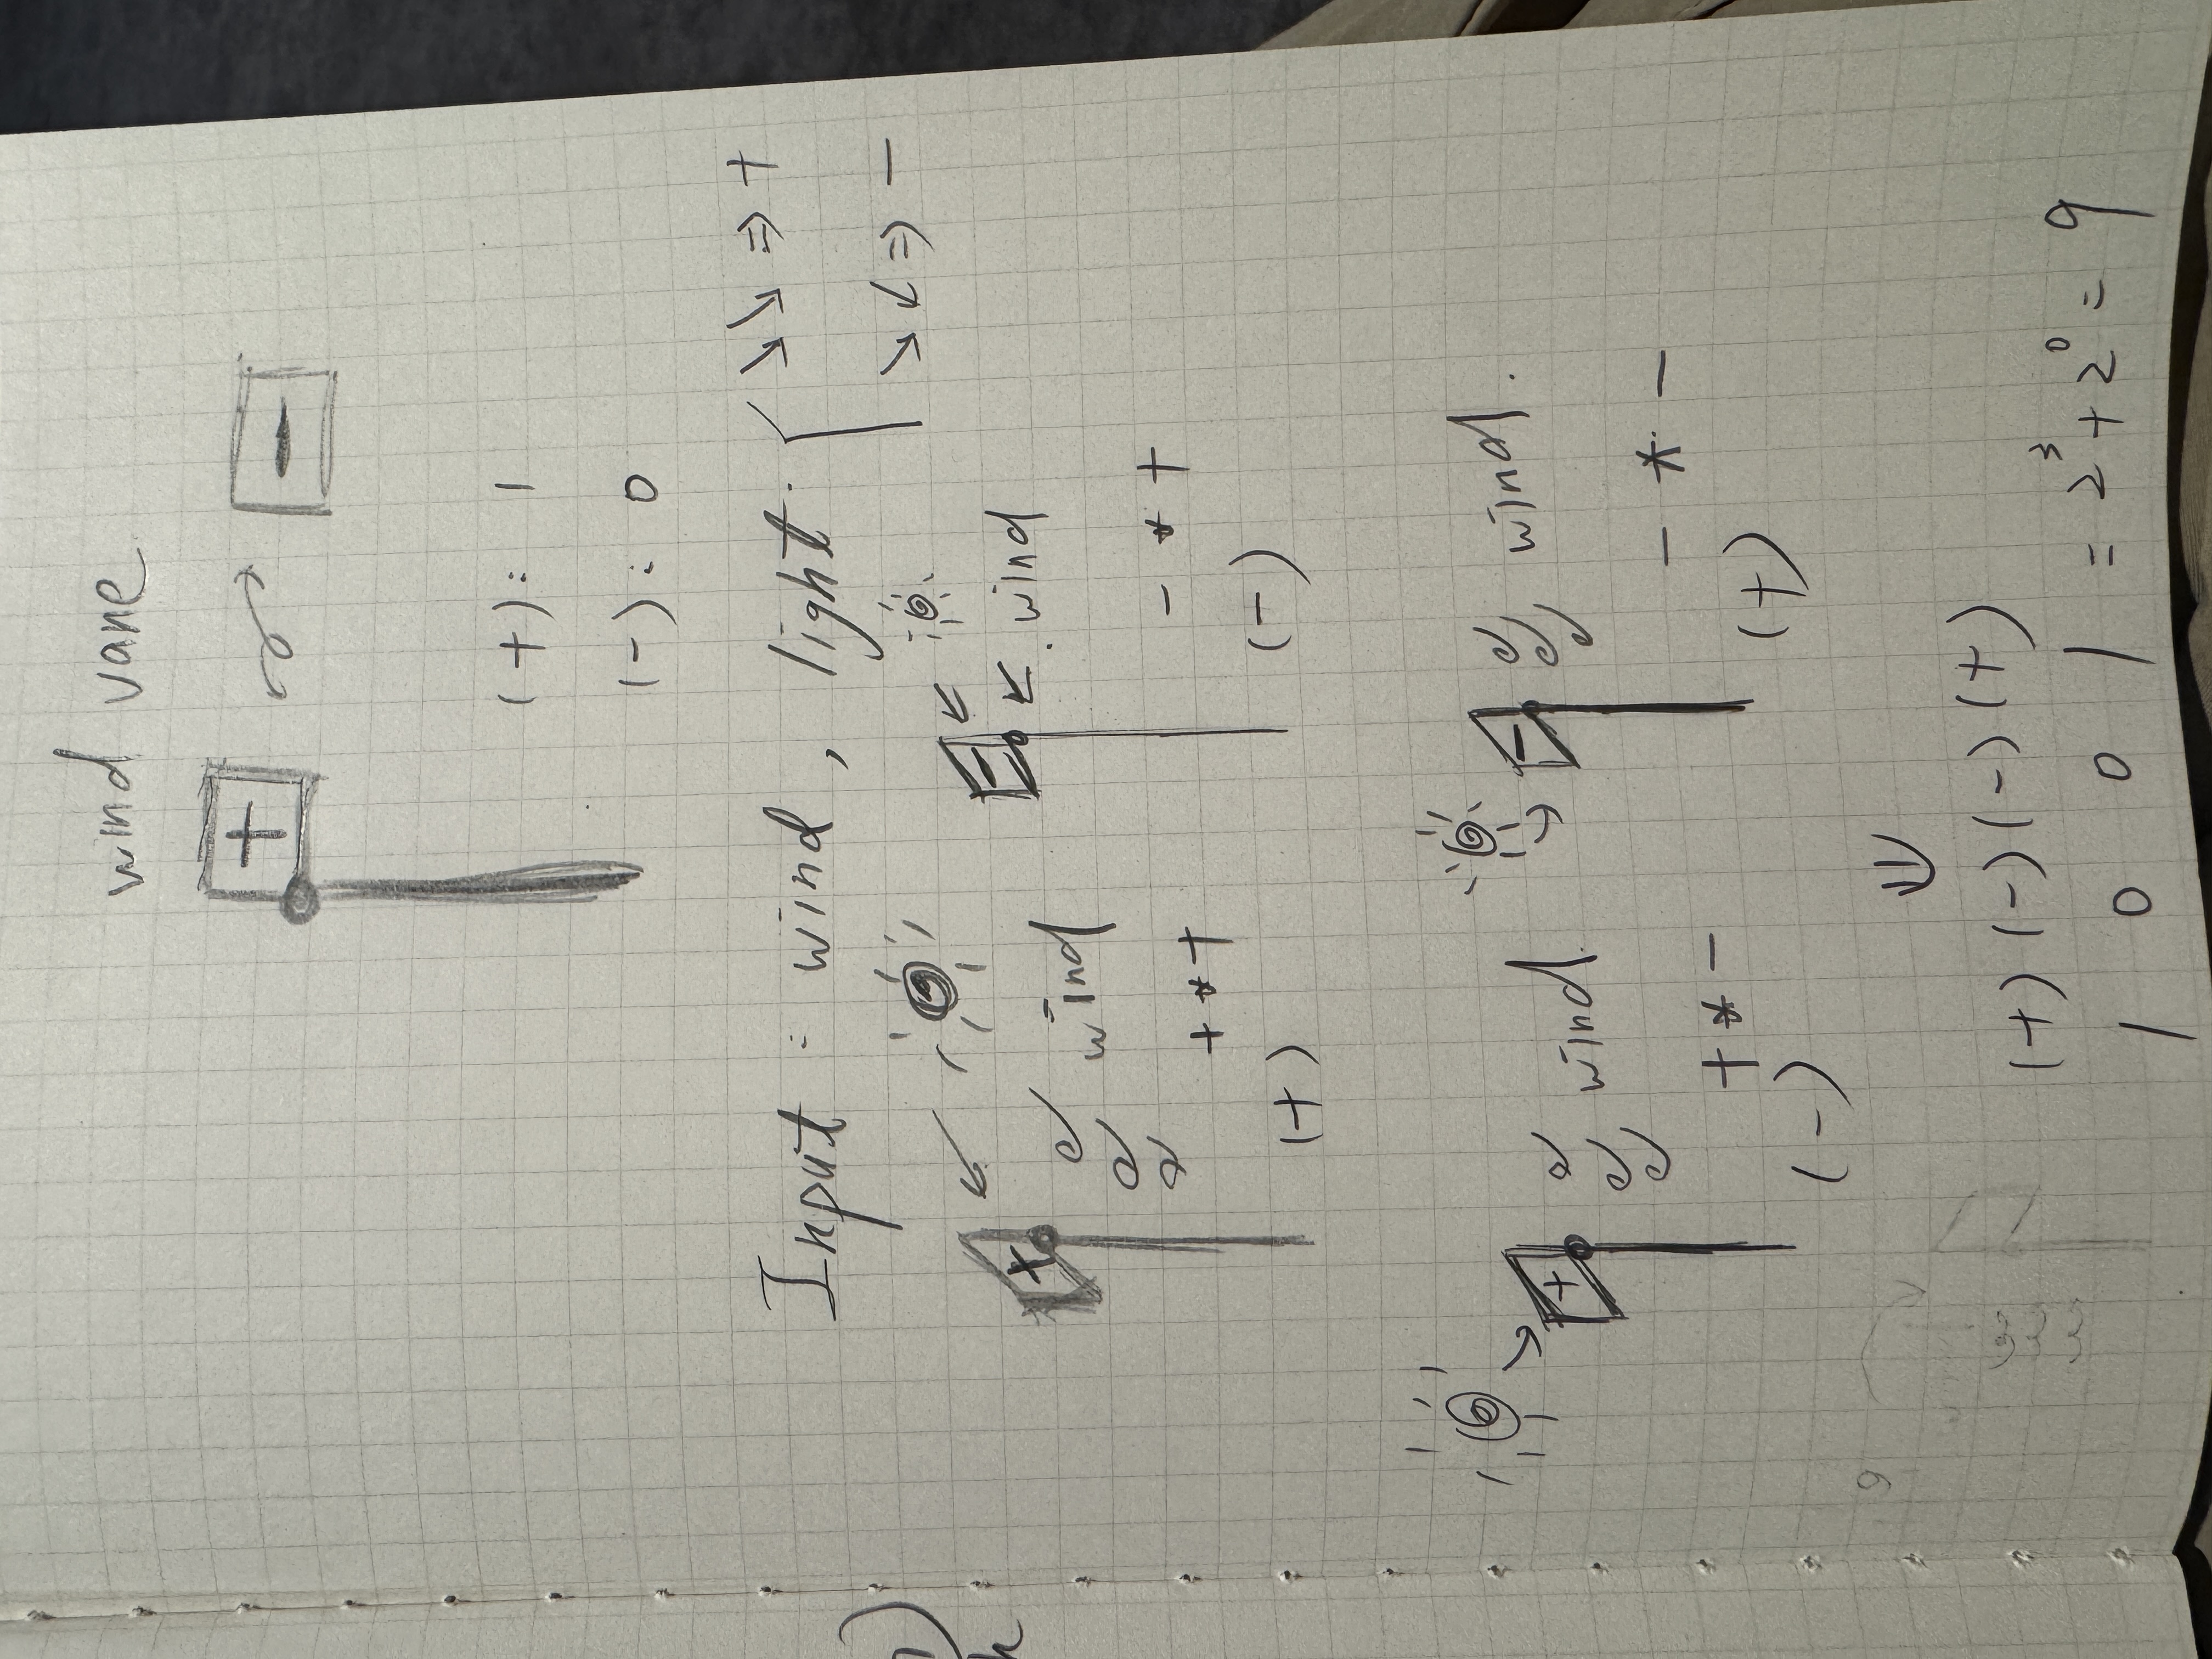 wind vane
+ -
(+): 1
(-): 0
Input: wind, light. ↘↘ ⇒ +
↘↙ ⇒ -
+ wind
- wind
+ * +
- * +
(+)
(-)
+ wind.
- wind.
+ * -
- * -
(-)
(+)
⇓
(+) (-) (-) (+)
1 0 0 1 = 2³ + 2⁰ = 9